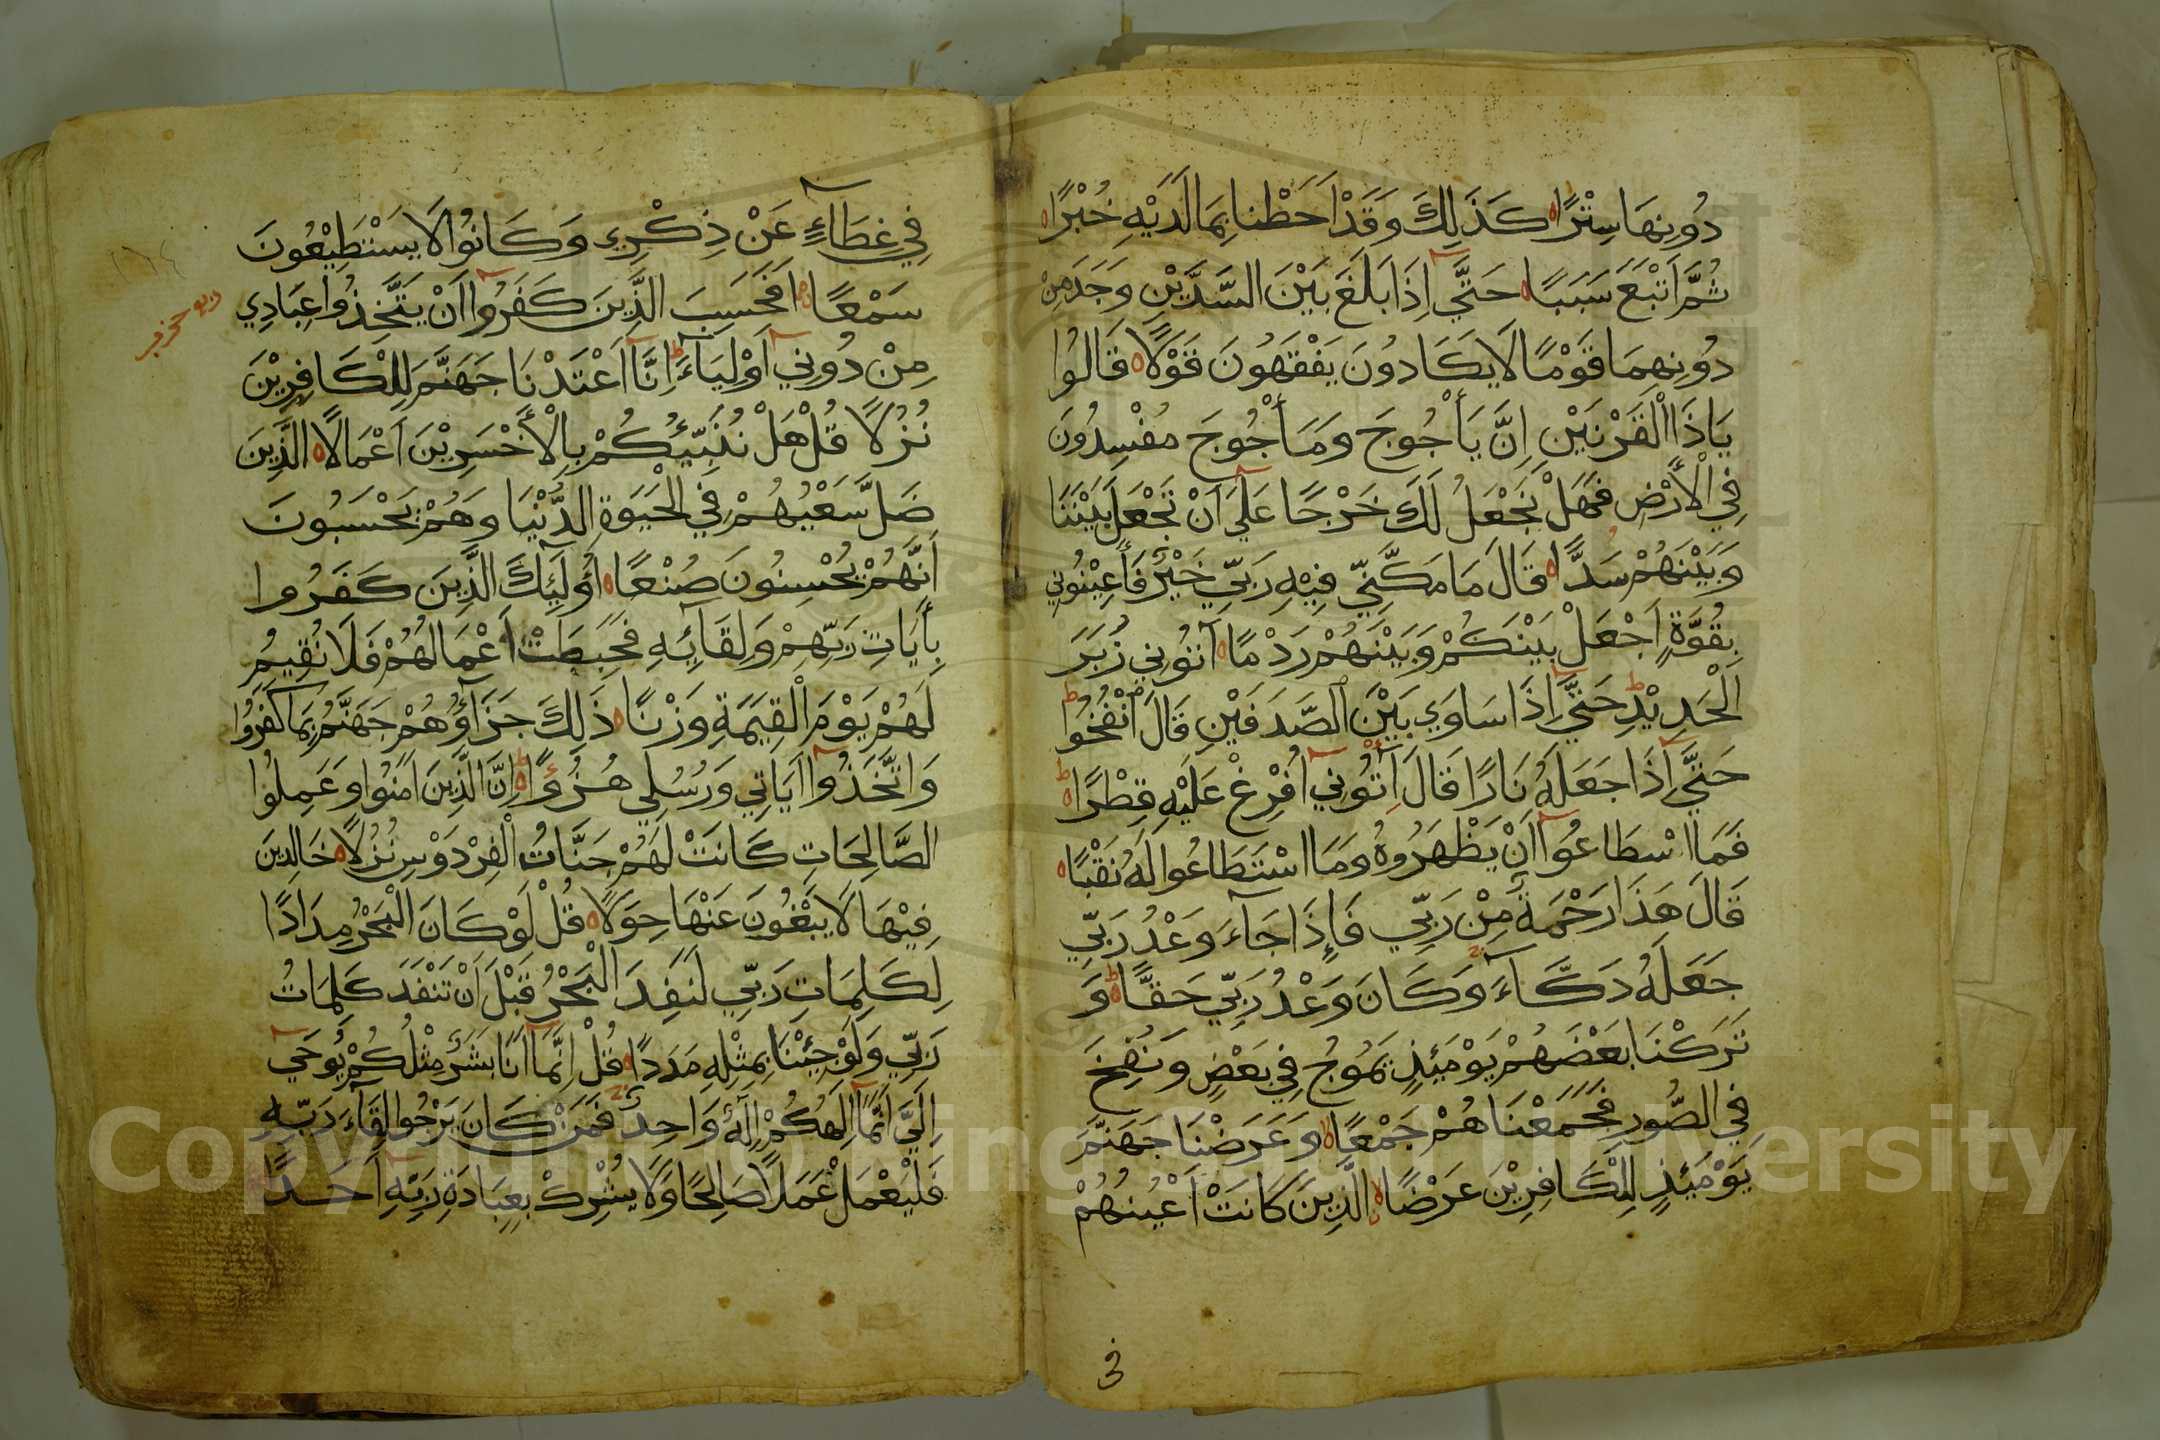 دُونِهَا سِتْرًا كَذَلِكَ وَقَدْ اَحَطْنَا بِمَا لَدَيْهِ خُبْرًا
ثُمَّ اَتْبَعَ سَبَبًا حَتَّى اِذَا بَلَغَ بَيْنَ السَّدَّيْنِ وَجَدَ مِنْ
دُونِهِمَا قَوْمًا لَا يَكَادُونَ يَفْقَهُونَ قَوْلًا قَالُوا
يَاذَا الْقَرْنَيْنِ اِنَّ يَأْجُوجَ وَمَأْجُوجَ مُفْسِدُونَ
فِي الْأَرْضِ فَهَلْ نَجْعَلُ لَكَ خَرْجًا عَلَى اَنْ تَجْعَلَ بَيْنَنَا
وَبَيْنَهُمْ سُدًّا قَالَ مَا مَكَّنِّي فِيْهِ رَبِّي خَيْرٌ فَأَعِيْنُونِي
بِقُوَّةٍ اَجْعَلْ بَيْنَكُمْ وَبَيْنَهُمْ رَدْمًا آتُونِي زُبَرَ
الْحَدِيْدِ حَتَّى اِذَا سَاوَى بَيْنَ الصَّدَفَيْنِ قَالَ انْفُخُوا
حَتَّى اِذَا جَعَلَهُ نَارًا قَالَ آتُونِي اُفْرِغْ عَلَيْهِ قِطْرًا
فَمَا اسْطَاعُوا اَنْ يَظْهَرُوهُ وَمَا اسْتَطَاعُوا لَهُ نَقْبًا
قَالَ هَذَا رَحْمَةٌ مِنْ رَبِّي فَإِذَا جَآءَ وَعْدُ رَبِّي
جَعَلَهُ دَكَّآءَ وَكَانَ وَعْدُ رَبِّي حَقًّا وَ
تَرَكْنَا بَعْضَهُمْ يَوْمَئِذٍ يَمُوجُ فِي بَعْضٍ وَنُفِخَ
فِي الصُّورِ فَجَمَعْنَاهُمْ جَمْعًا وَعَرَضْنَا جَهَنَّمَ
يَوْمَئِذٍ لِلْكَافِرِيْنَ عَرْضًا الَّذِيْنَ كَانَتْ اَعْيُنُهُمْ
فى
فِي غِطَآءٍ عَنْ ذِكْرِي وَكَانُوا لَا يَسْتَطِيْعُونَ
سَمْعًا اَفَحَسِبَ الَّذِيْنَ كَفَرُوا اَنْ يَتَّخِذُوا عِبَادِي
مِنْ دُونِي اَوْلِيَآءَ اِنَّا اَعْتَدْنَا جَهَنَّمَ لِلْكَافِرِيْنَ
نُزُلًا قُلْ هَلْ نُنَبِّئُكُمْ بِالْأَخْسَرِيْنَ اَعْمَالًا الَّذِيْنَ
ضَلَّ سَعْيُهُمْ فِي الْحَيَوةِ الدُّنْيَا وَهُمْ يَحْسَبُونَ
اَنَّهُمْ يُحْسِنُونَ صُنْعًا اُولَٓئِكَ الَّذِيْنَ كَفَرُوا
بِأَيَاتِ رَبِّهِمْ وَلِقَآئِهِ فَحَبِطَتْ اَعْمَالُهُمْ فَلَا نُقِيمُ
لَهُمْ يَوْمَ الْقِيَمَةِ وَزْنًا ذَلِكَ جَزَآؤُهُمْ جَهَنَّمُ بِمَا كَفَرُوا
وَاتَّخَذُوا اَيَاتِي وَرُسُلِي هُزُوًا اِنَّ الَّذِيْنَ اَمَنُوا وَعَمِلُوا
الصَّالِحَاتِ كَانَتْ لَهُمْ جَنَّاتُ الْفِرْدَوْسِ نُزُلًا خَالِدِيْنَ
فِيْهَا لَا يَبْغُونَ عَنْهَا حِوَلًا قُلْ لَوْ كَانَ الْبَحْرُ مِدَادًا
لِكَلِمَاتِ رَبِّي لَنَفِدَ الْبَحْرُ قَبْلَ اَنْ تَنْفَدَ كَلِمَاتُ
رَبِّي وَلَوْ جِئْنَا بِمِثْلِهِ مَدَدًا قُلْ اِنَّمَا اَنَا بَشَرٌ مِثْلُكُمْ يُوحَى
اِلَيَّ اَنَّمَا اِلَهُكُمْ اِلَهٌ وَاحِدٌ فَمَنْ كَانَ يَرْجُوا لِقَآءَ رَبِّهِ
فَلْيَعْمَلْ عَمَلًا صَالِحًا وَلَا يُشْرِكْ بِعِبَادَةِ رَبِّهِ اَحَدًا
١٦٤
Copyright © King Saud University